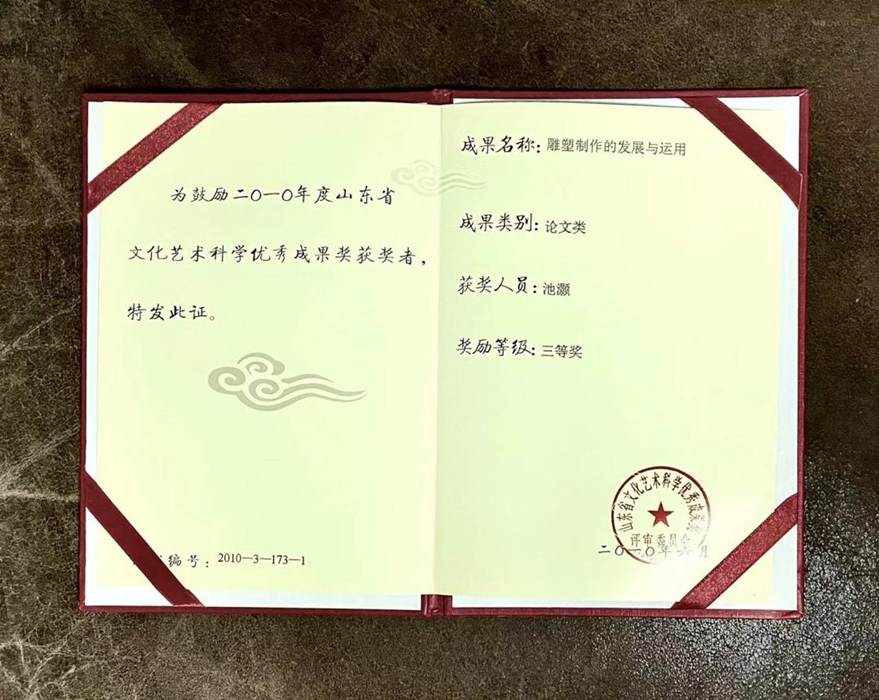 为鼓励二〇一〇年度山东省
文化艺术科学优秀成果奖获奖者，
特发此证。
编号：2010—3—173—1
成果名称：雕塑制作的发展与运用
成果类别：论文类
获奖人员：池灏
奖励等级：三等奖
山东省文化艺术科学优秀成果奖
评审委员会
二〇一〇年 月